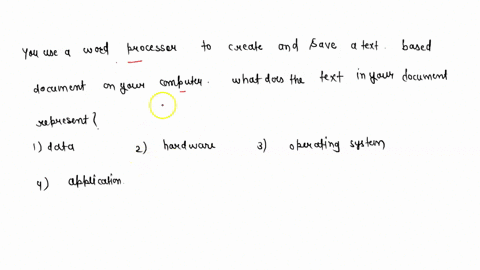 you use a word processor to create and save a text based
document on your computer. what does the text in your document
represent?
1) data 2) hardware 3) operating system
4) application.